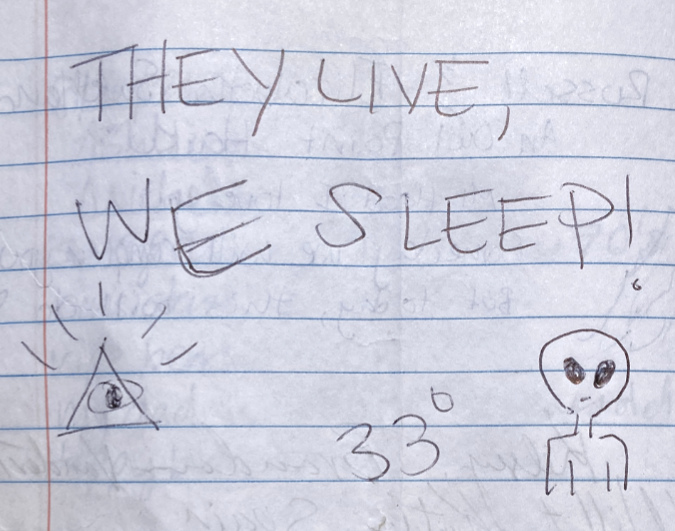 THEY LIVE,
WE SLEEP!
33°